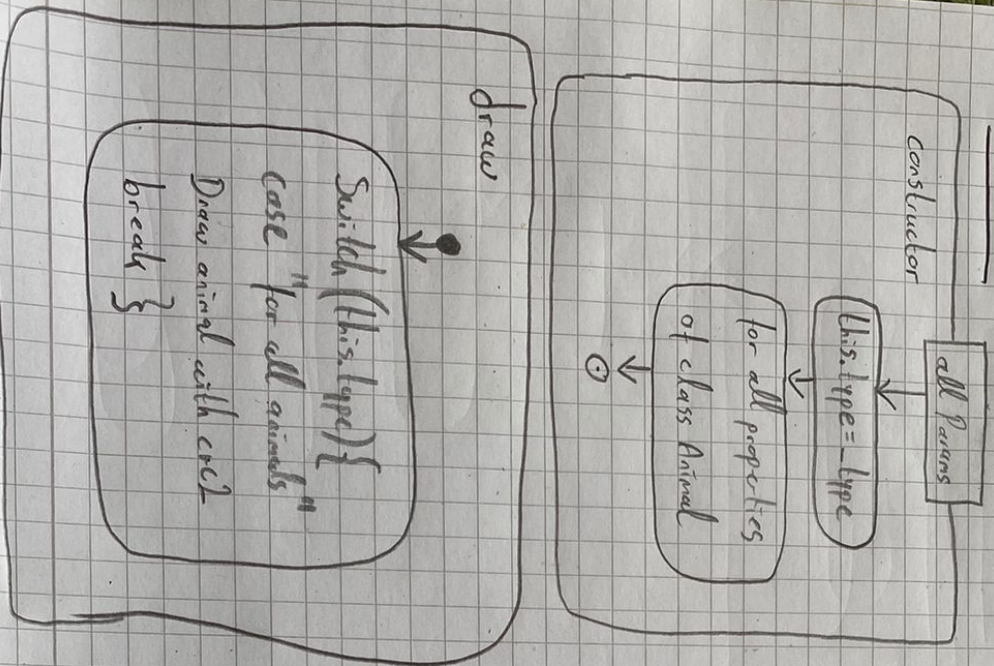 constructor
all Params
this.type=_type
for all properties
of class Animal
draw
Switch (this.type){
case "for all animals"
Draw animal with crc2
break }